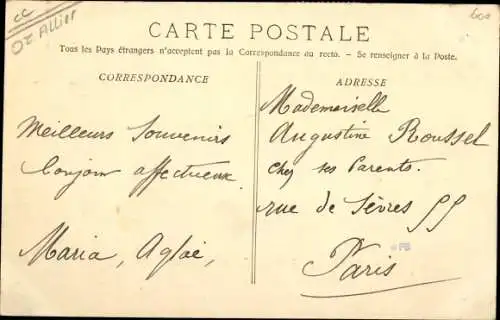 CC
600
CARTE POSTALE
Tous les Pays étrangers n'acceptent pas la Correspondance au recto. - Se renseigner à la Poste.
CORRESPONDANCE
Meilleurs Souvenirs
bonjour affectueux
Maria, Aglaé,
ADRESSE
Mademoiselle
Augustine Roussel
chez ses Parents.
rue de Sèvres 55
Paris
PB